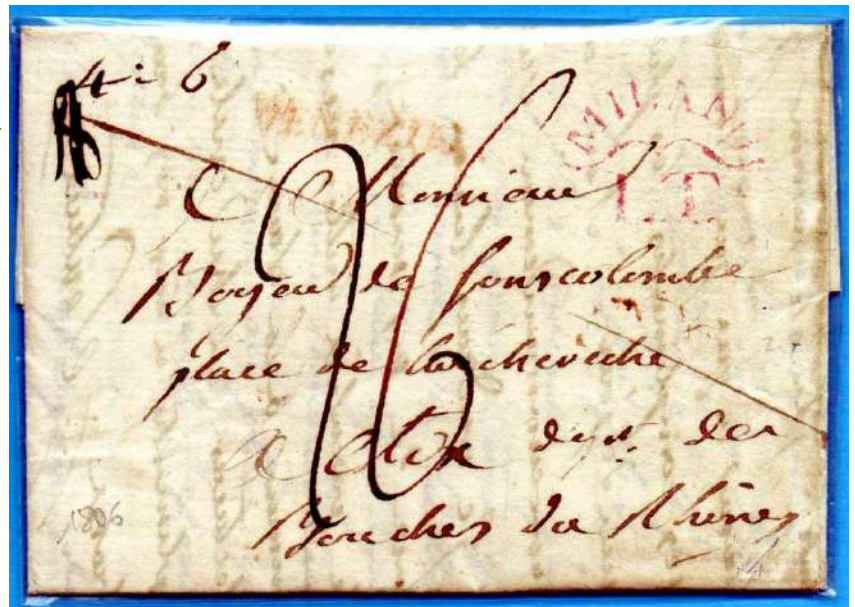 4 = 6
VENEZIA
MILANO
I.T.
A Monsieur
Boyer de fonscolombe
place de l'archeveché
a Aix dept. des
Bouches du Rhône
1806